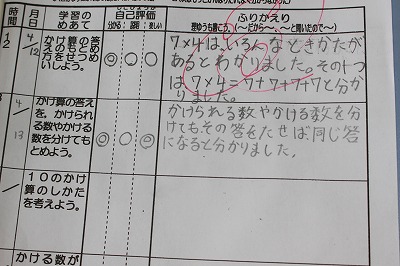 時間
月日
学習の
めあて
自己評価
ふりかえり
分かる 説明 楽しい
理由やうも書こう。(～だから～、～と聞いたので～)
12
4/12
かけ算の答
えのもとめ
方をせつめ
いしよう。
◎ ◎ ◎
7×4は、いろんなときかたが
あるとわかりました。その1つ
は7×4=7+7+7+7と分か
りました。
4/13
かけ算の答え
を、かけられ
る数やかける
数を分けても
とめよう。
◎ ◎ ◎
かけられる数やかける数を分
けてもその答をたせば同じ答
になると分かりました。
/
10のかけ
算のしかた
を考えよう。
かける数が